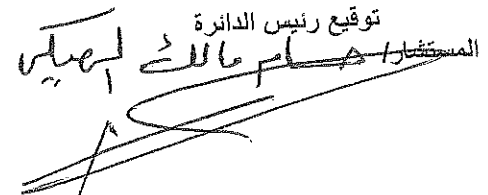 توقيع رئيس الدائرة
المستشار/ حسام مالك